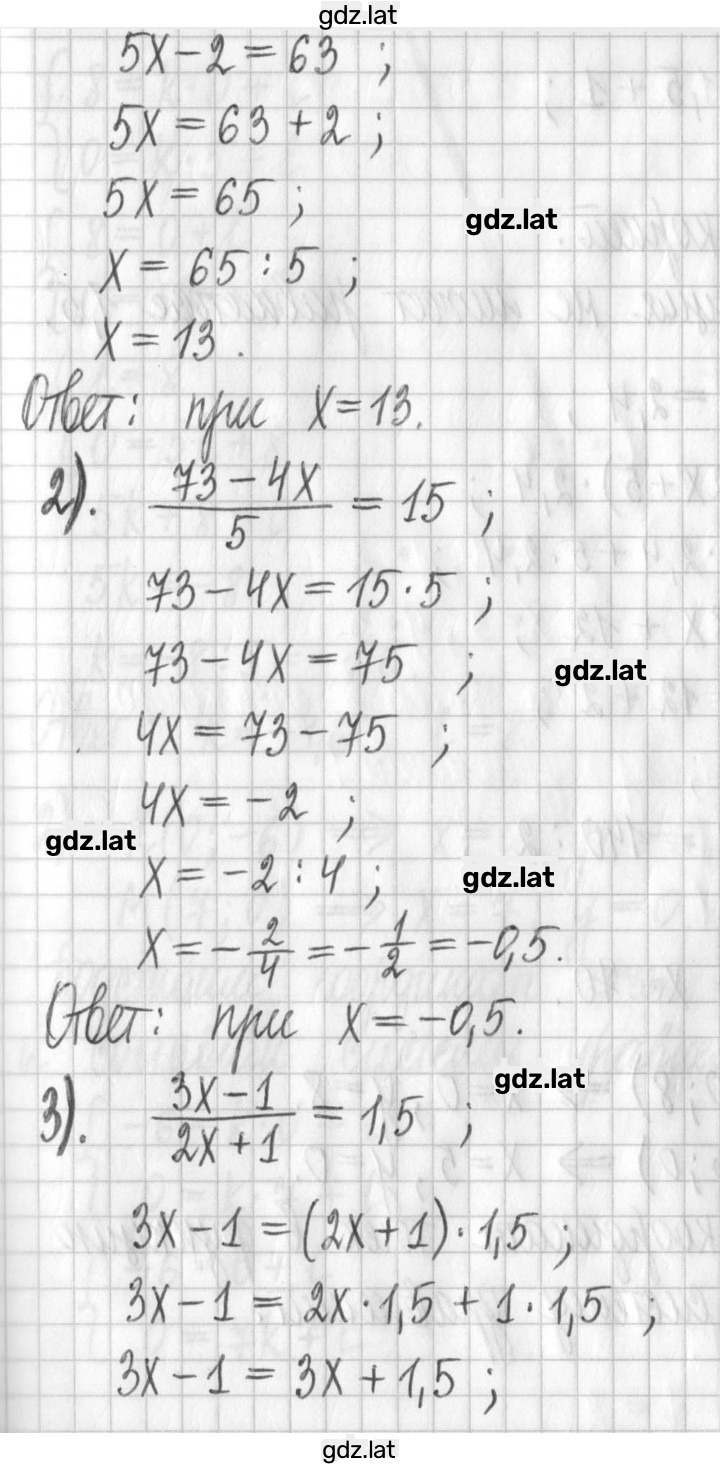 gdz.lat
5x - 2 = 63 ;
5x = 63 + 2 ;
5x = 65 ;
gdz.lat
x = 65 : 5 ;
x = 13 .
Ответ: при x = 13.
2). (73 - 4x)/5 = 15 ;
73 - 4x = 15 · 5 ;
73 - 4x = 75 ;
gdz.lat
4x = 73 - 75 ;
4x = -2 ;
gdz.lat
x = -2 : 4 ;
gdz.lat
x = - 2/4 = - 1/2 = -0,5.
Ответ: при x = -0,5.
gdz.lat
3). (3x - 1)/(2x + 1) = 1,5 ;
3x - 1 = (2x + 1) · 1,5 ;
3x - 1 = 2x · 1,5 + 1 · 1,5 ;
3x - 1 = 3x + 1,5 ;
gdz.lat